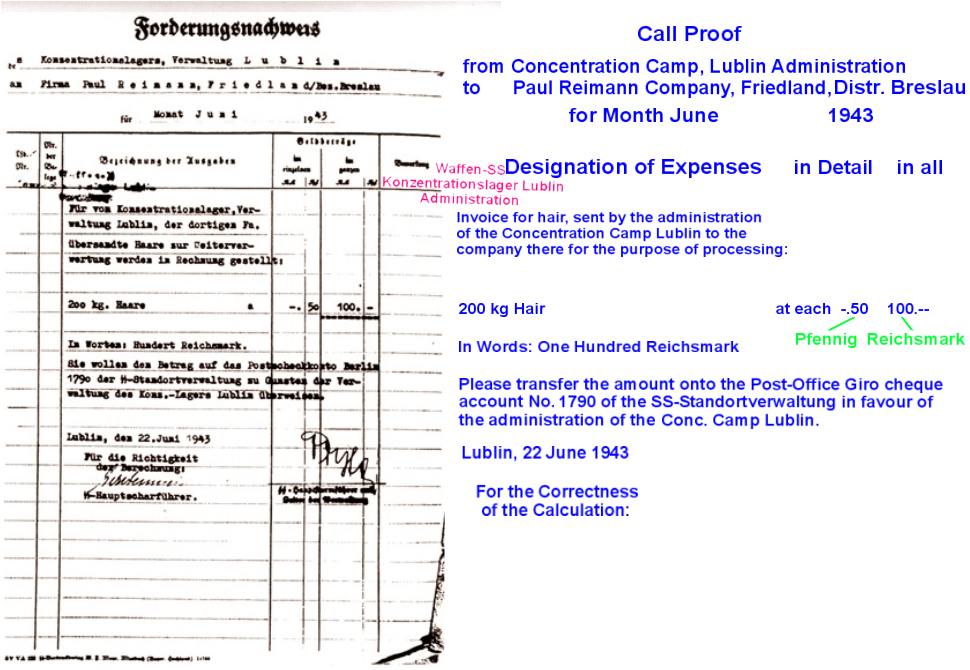 Forderungsnachweis
Konzentrationslagers, Verwaltung L u b l i n
an Firma Paul R e i m a n n, F r i e d l a n d/Bez.Breslau
für Monat J u n i 1943
Geldbeträge
Nr. der
Bezeichnung der Ausgaben im einzelnen im ganzen Bemerkung
Für vom Konzentrationslager,Ver-
waltung Lublin, der dortigen Fa.
übersandte Haare zur Weiterver-
wertung werden in Rechnung gestellt:
200 kg. Haare a -. 50 100. -
In Worten: Hundert Reichsmark.
Sie wollen den Betrag auf das Postscheckkonto Berlin
1790 der SS-Standortverwaltung zu Gunsten der Ver-
waltung des Konz.-Lagers Lublin überweisen.
Lublin, den 22.Juni 1943
Für die Richtigkeit
der Berechnung:
SS-Hauptscharführer.
Call Proof
from Concentration Camp, Lublin Administration
to Paul Reimann Company, Friedland, Distr. Breslau
for Month June 1943
Waffen-SS
Konzentrationslager Lublin
Administration
Designation of Expenses in Detail in all
Invoice for hair, sent by the administration
of the Concentration Camp Lublin to the
company there for the purpose of processing:
200 kg Hair at each -.50 100.--
Pfennig Reichsmark
In Words: One Hundred Reichsmark
Please transfer the amount onto the Post-Office Giro cheque
account No. 1790 of the SS-Standortverwaltung in favour of
the administration of the Conc. Camp Lublin.
Lublin, 22 June 1943
For the Correctness
of the Calculation: